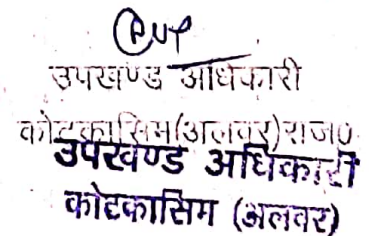 उपखण्ड अधिकारी
कोटकासिम(अलवर)राज०
उपखण्ड अधिकारी
कोटकासिम (अलवर)